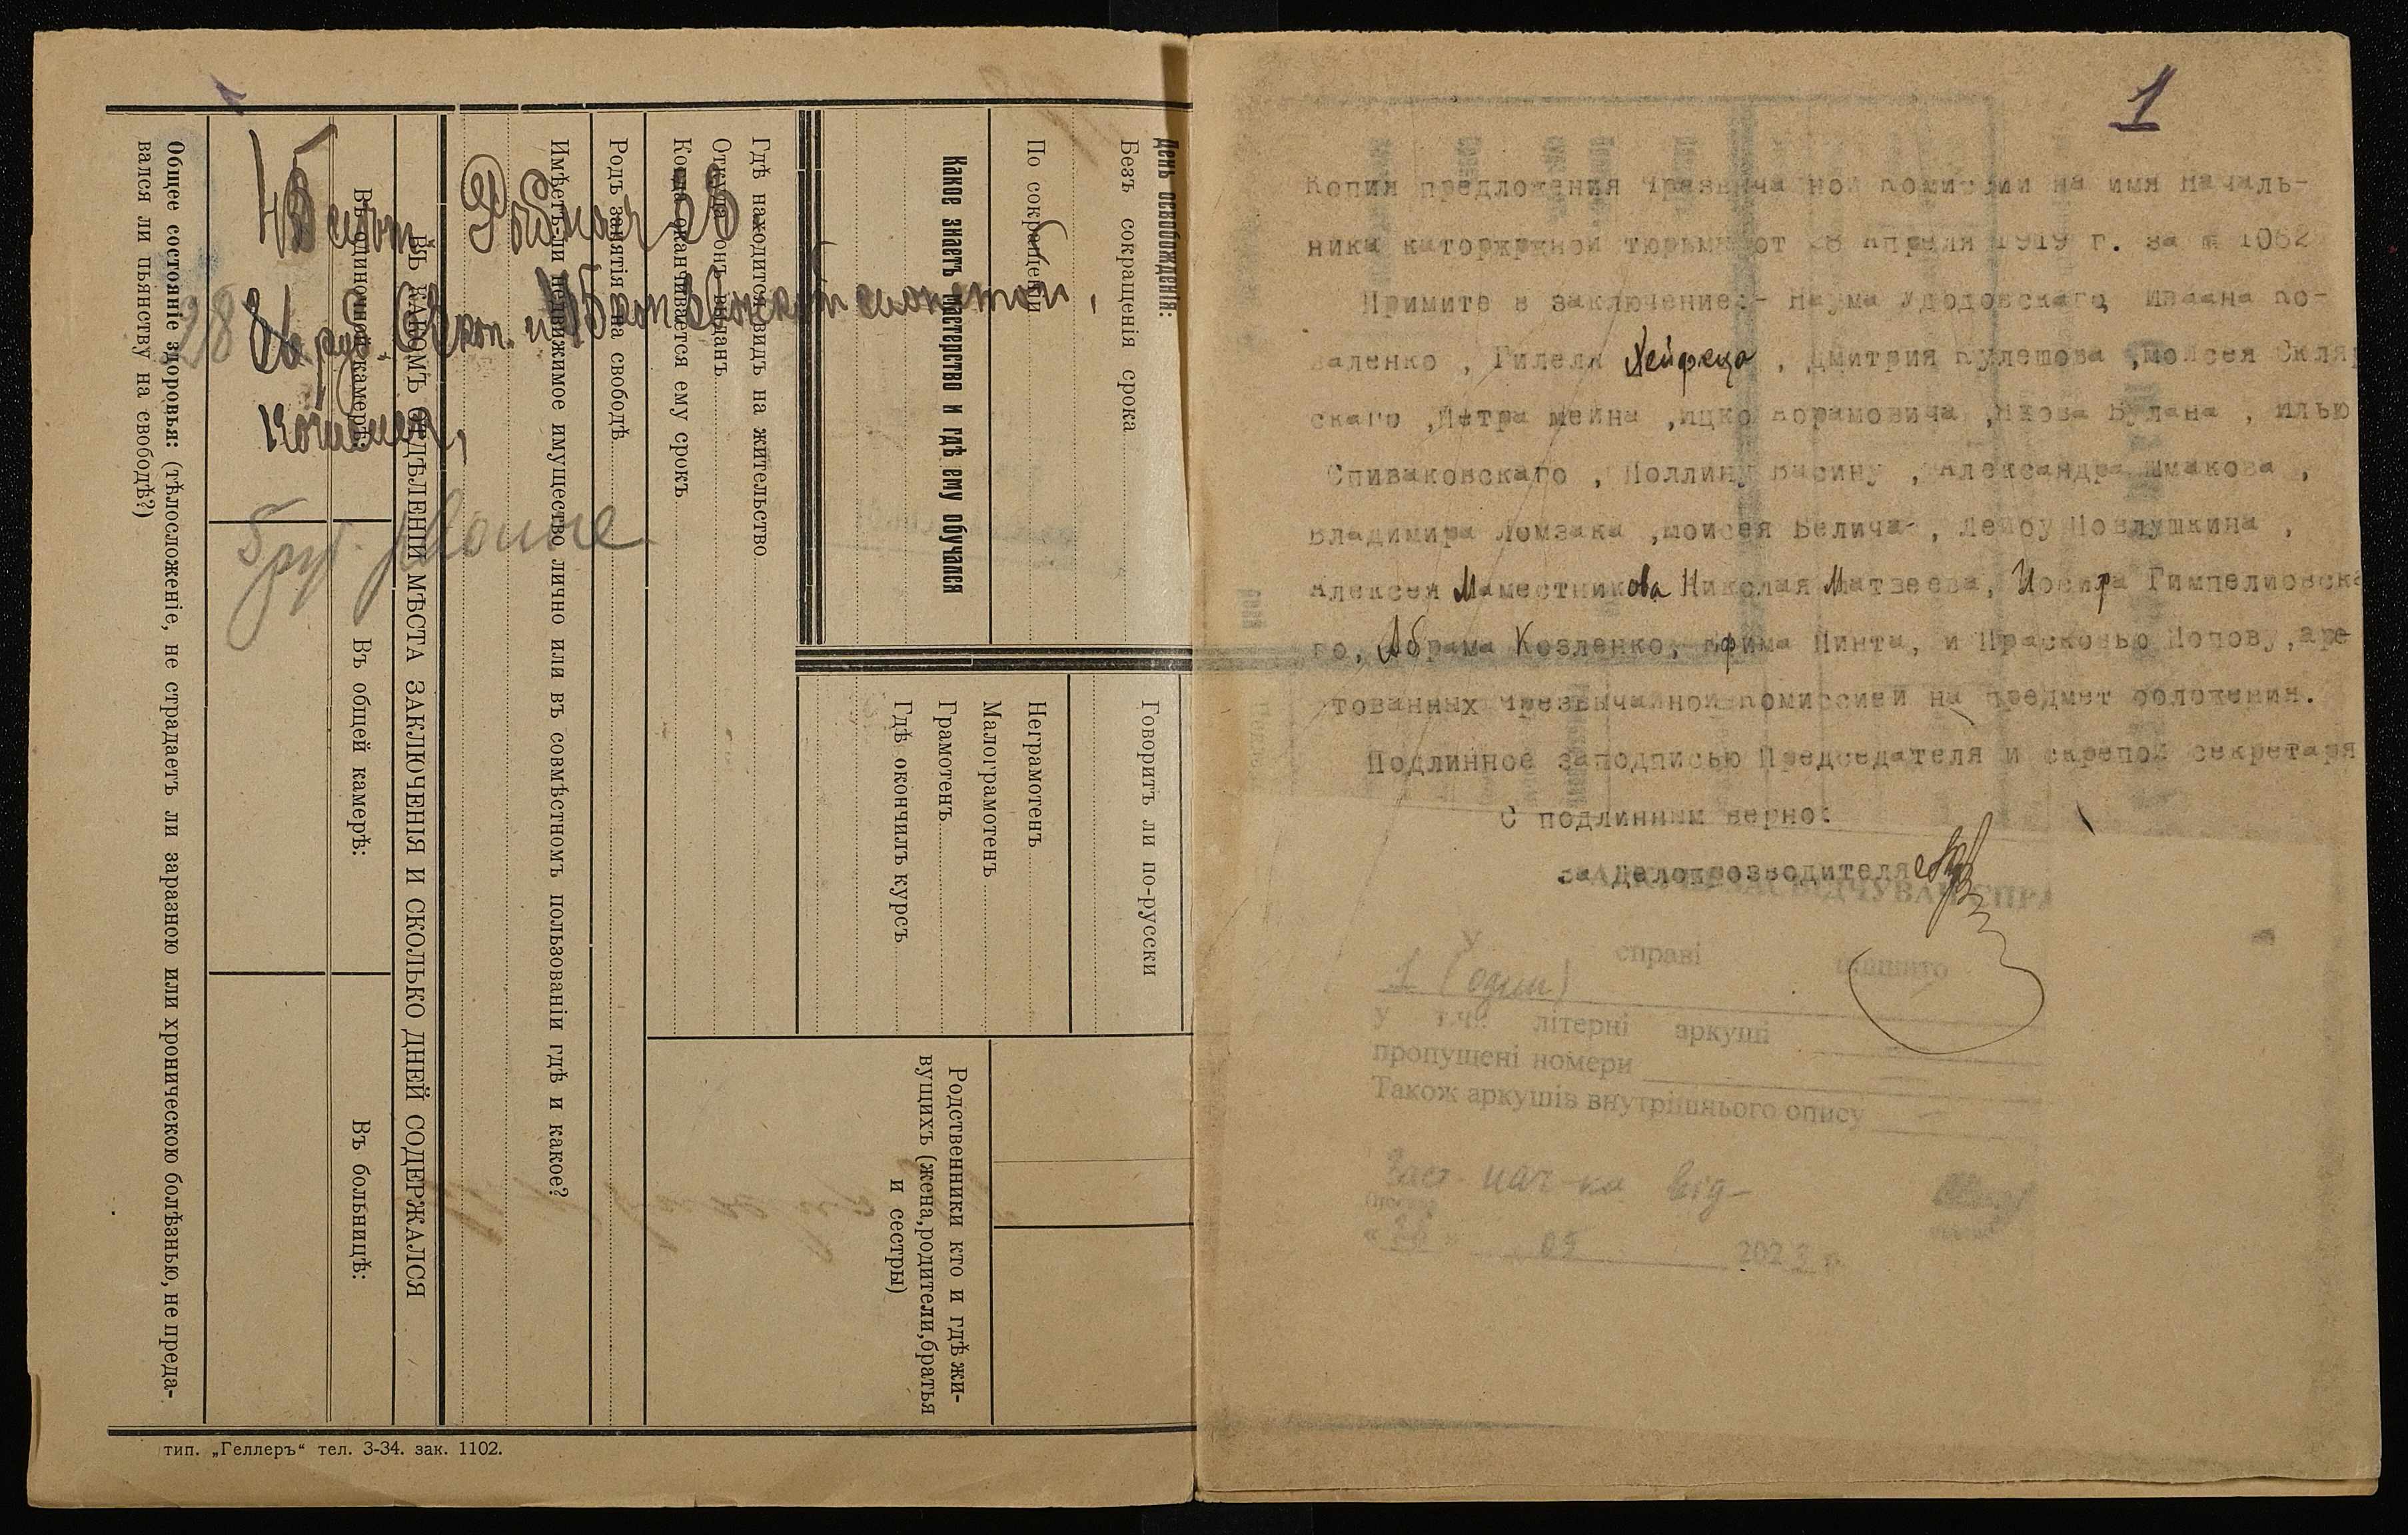 День освобожденія:
Безъ сокращенія срока
По сокращеніи
Говоритъ ли по-русски
Неграмотенъ
Малограмотенъ
Грамотенъ
Гдѣ окончилъ курсъ
Какое знаетъ мастерство и гдѣ ему обучался
Родственники кто и гдѣ жи-
вущихъ (жена, родители, братья
и сестры)
Гдѣ находится видъ на жительство
Откуда онъ выданъ
Когда оканчивается ему срокъ
Родъ занятія на свободѣ
Имѣетъ ли недвижимое имущество лично или въ совмѣстномъ пользованіи гдѣ и какое?
ВЪ КАКОМЪ ОТДѢЛЕНІИ МѢСТА ЗАКЛЮЧЕНІЯ И СКОЛЬКО ДНЕЙ СОДЕРЖАЛСЯ
Въ одиночной камерѣ:
Въ общей камерѣ:
Въ больницѣ:
Общее состояніе здоровья: (тѣлосложеніе, не страдаетъ ли заразною или хроническою болѣзнью, не преда-
вался ли пьянству на свободѣ?)
тип. „Геллеръ“ тел. 3-34. зак. 1102.
руб. коп. и
5 руб.
1
Копия предложения Чрезвычайной Комиссии на имя Началь-
ника каторжржной тюрьмы от 28 Апреля 1919 г. за № 1062
Примите в заключение:- Наума Удодовскаго, Иваана Ко-
валенко , Гилеля Хейфеца , Дмитрия Кулешова ,Моисея Скляр
скаго ,Петра Мейна ,Ицко Абрамовича ,Якова Булана , Илью
Спиваковскаго , Поллину Васину , Александра Шмакова ,
Владимира Ломзака ,Моисея Белича- , Лейбу Повлушкина ,
Алексея Маместникова Николая Матвеева, Иосифа Гимпелиовска
го, Абрама Козленко, Ефима Пинта, и Прасковью Попову, аре-
тованных Чрезвычайной Комиссией на предмет обложения.
Подлинное заподписью Председателя и скрепой секретаря
С подлинным верно:
За Делопроизводителя
У справі підшито
1 (один)
У т.ч. літерні аркуші
пропущені номери
Також аркушів внутрішнього опису
Заст. нач-ка від-
09 202 р.